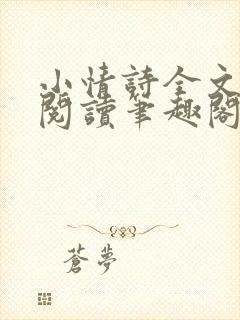 小情詩全文
閱讀筆趣閣
蒼夢